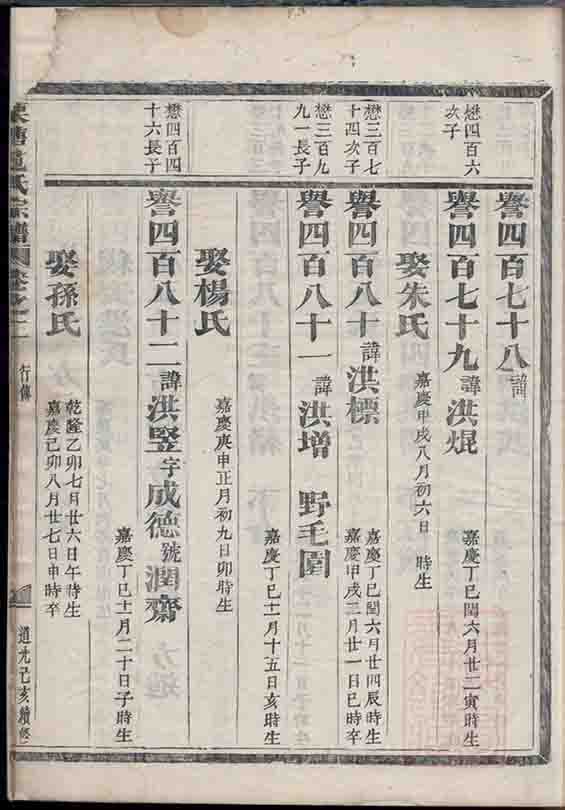 譽四百七十八 諱
懋四百六
次子
譽四百七十九 諱 洪焜 嘉慶丁巳閏六月廿二寅時生
娶朱氏 嘉慶甲戌八月初六日 時生
懋三百七
十四次子
譽四百八十 諱 洪標 嘉慶丁巳閏六月廿四辰時生
嘉慶甲戌二月廿一日巳時卒
懋三百九
九一長子
譽四百八十一 諱 洪增 野毛圍 嘉慶丁巳十一月十五日亥時生
娶楊氏 嘉慶庚申正月初九日卯時生
懋四百四
十六長子
譽四百八十二 諱 洪竪 字 成德 號 潤齋 嘉慶丁巳十一月二十日子時生
娶孫氏 乾隆乙卯七月廿六日午時生
嘉慶己卯八月廿七日申時卒
氏宗譜 卷之二 行傳 道光己亥續修